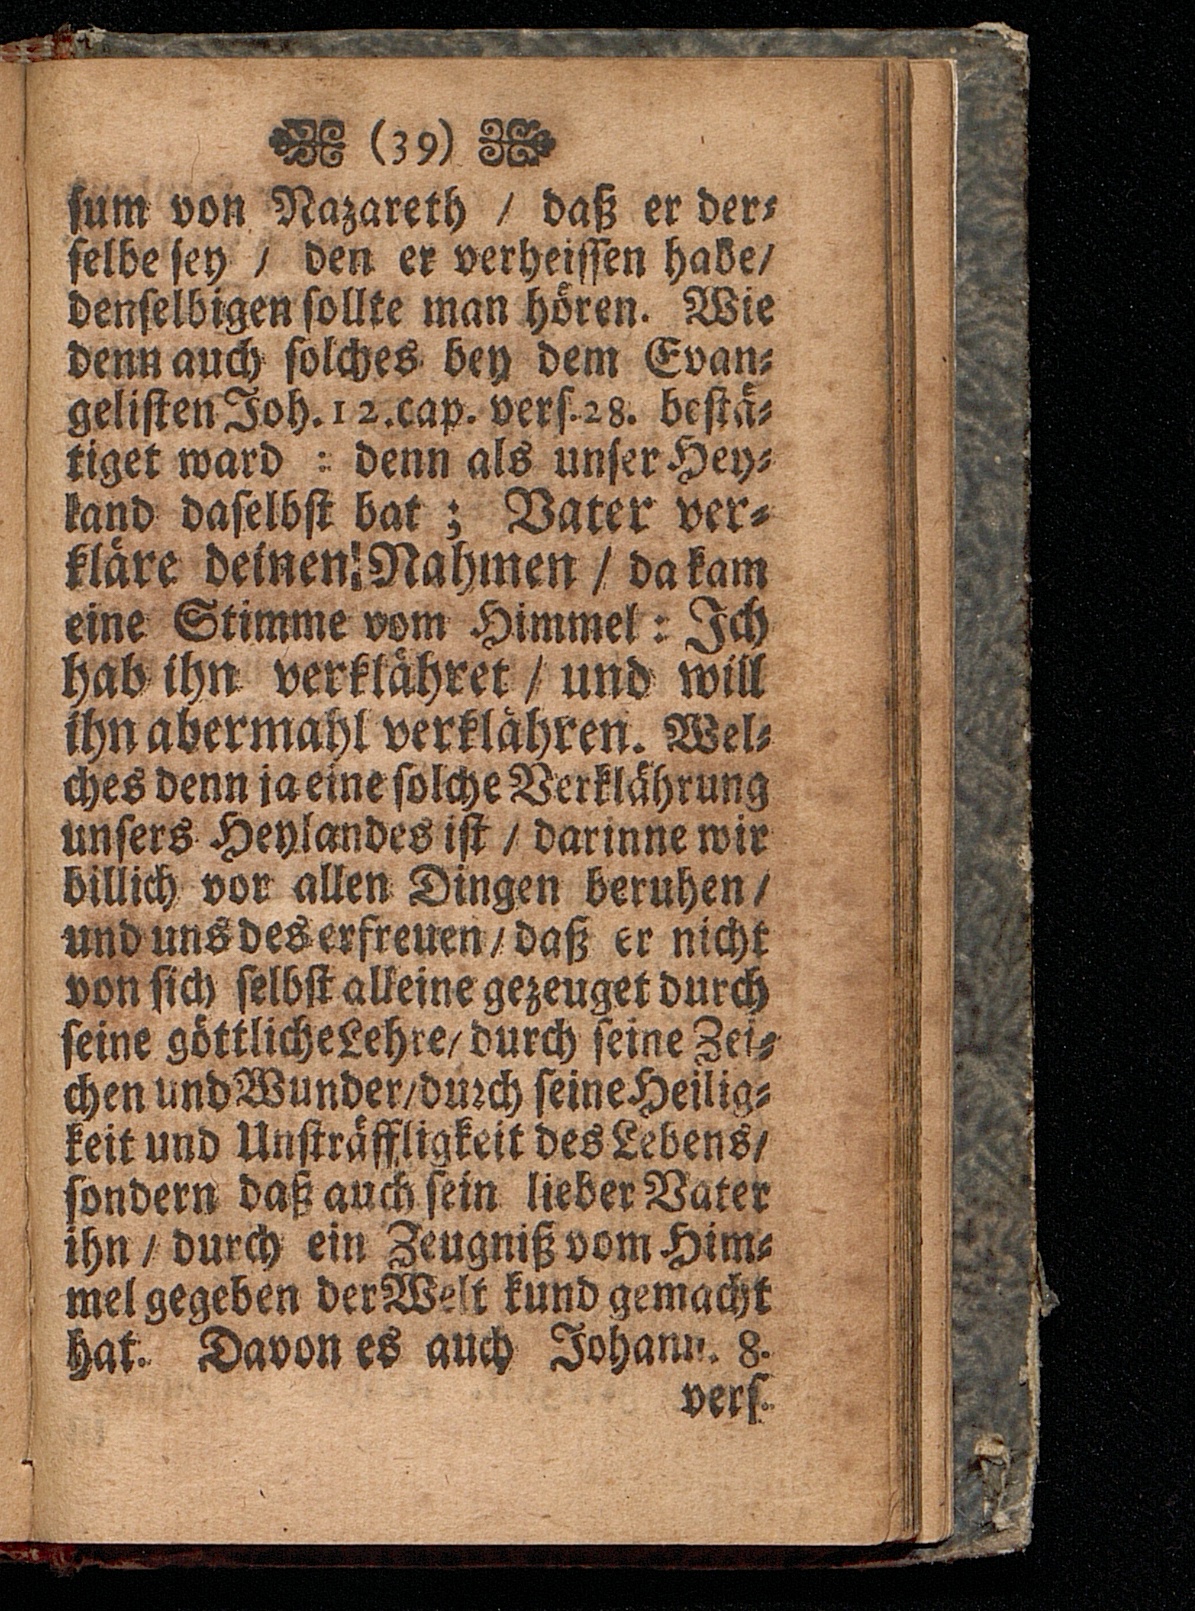 (39)
sum von Nazareth / daß er der⸗
selbe sey / den er verheissen habe/
denselbigen sollte man hören. Wie
denn auch solches bey dem Evan⸗
gelisten Joh. 12. cap. vers. 28. bestä⸗
tiget ward : denn als unser Hey⸗
land daselbst bat ; Vater ver⸗
kläre deinen! Nahmen / da kam
eine Stimme vom Himmel : Ich
hab ihn verklähret / und will
ihn abermahl verklähren. Wel⸗
ches denn ja eine solche Verklährung
unsers Heylandes ist / darinne wir
billich vor allen Dingen beruhen /
und uns des erfreuen / daß er nicht
von sich selbst alleine gezeuget durch
seine göttliche Lehre / durch seine Zei⸗
chen und Wunder / durch seine Heilig⸗
keit und Unsträffligkeit des Lebens /
sondern daß auch sein lieber Vater
ihn / durch ein Zeugniß vom Him⸗
mel gegeben der Welt kund gemacht
hat. Davon es auch Johann. 8.
vers.